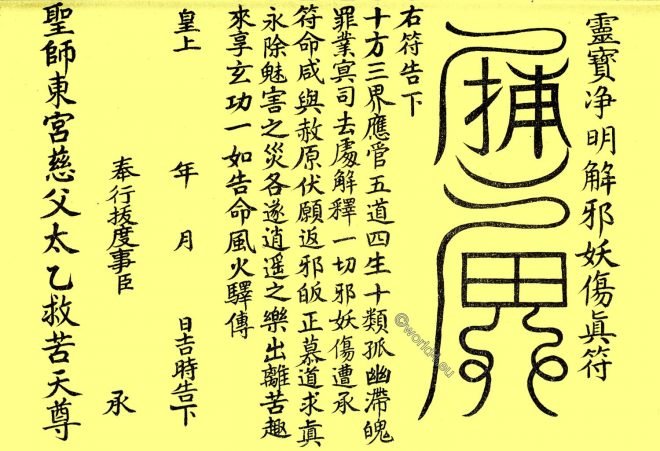 靈寶净明解邪妖傷眞符
右符告下
十方三界應管五道四生十類孤幽滯魄
罪業冥司去處解釋一切邪妖傷遭承
符命咸與赦原伏願返邪皈正慕道求眞
永除魅害之災各遂逍遥之樂出離苦趣
來享玄功一如告命風火驛傳
皇上 年 月 日吉時告下
奉行拔度事臣 承
聖師東宮慈父太乙救苦天尊
©world4.eu